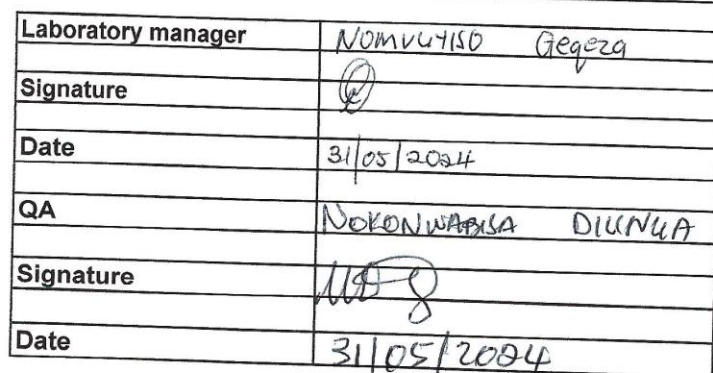 Laboratory manager NOMVUYISO Geqeza
Signature
Date 31/05/2024
QA NOKONWABISA
Signature
Date 31/05/2024